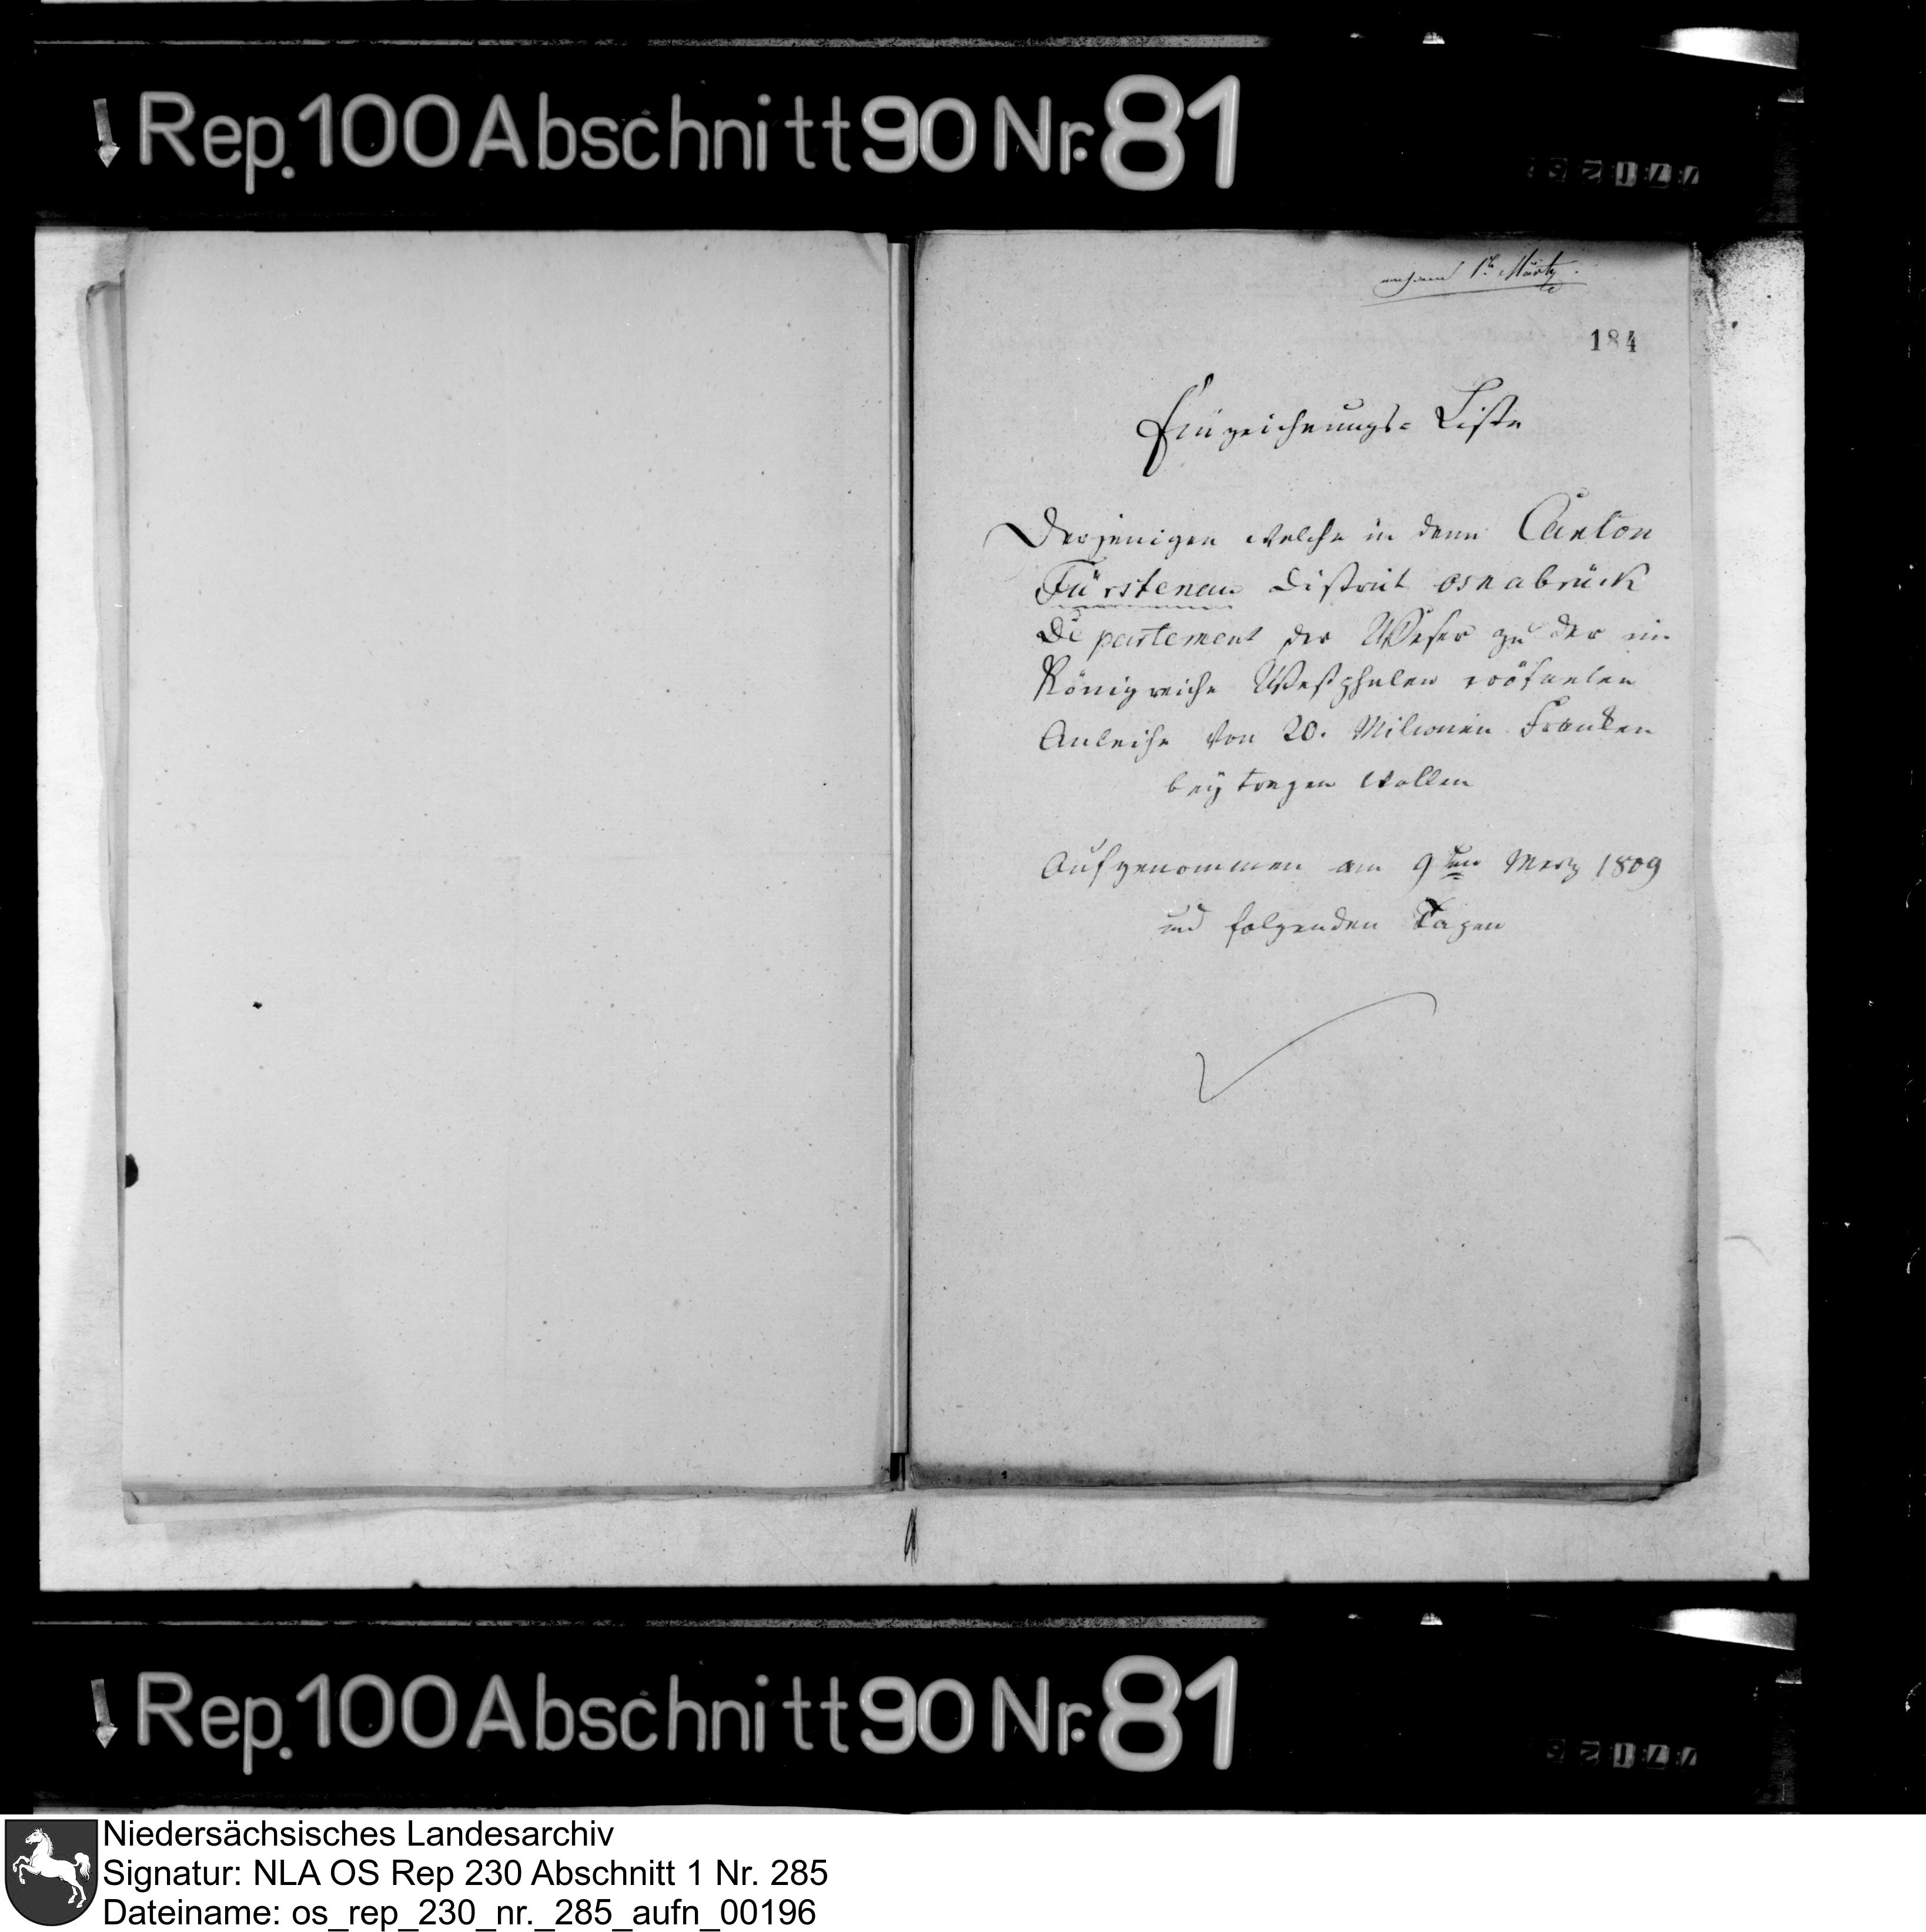 Rep. 100 Abschnitt 90 Nr. 81
1t. Märtz.
184
Einzeichnungs= Liste
Derjenigen welche in dem Canton
Fürstenau District Osnabrück
Departement der Weser zu der im
Königreiche Westphalen eröfneten
Anleihe von 20. Milionen Franken
beytragen wollen
Aufgenommen am 9ten Merz 1809
und folgenden Tagen
Rep. 100 Abschnitt 90 Nr. 81
Niedersächsisches Landesarchiv
Signatur: NLA OS Rep 230 Abschnitt 1 Nr. 285
Dateiname: os_rep_230_nr._285_aufn_00196